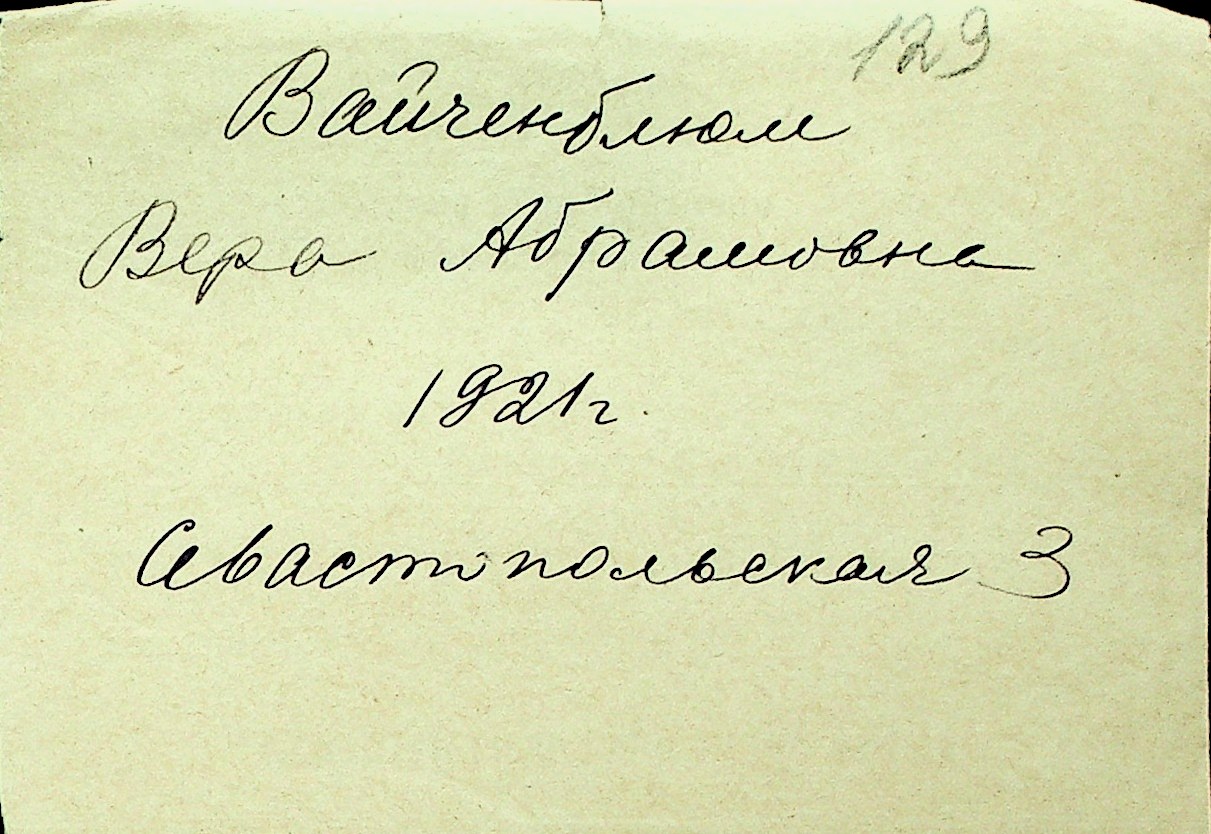 129
Вайченблюм
Вера Абрамовна
1921г.
Севастопольская 3